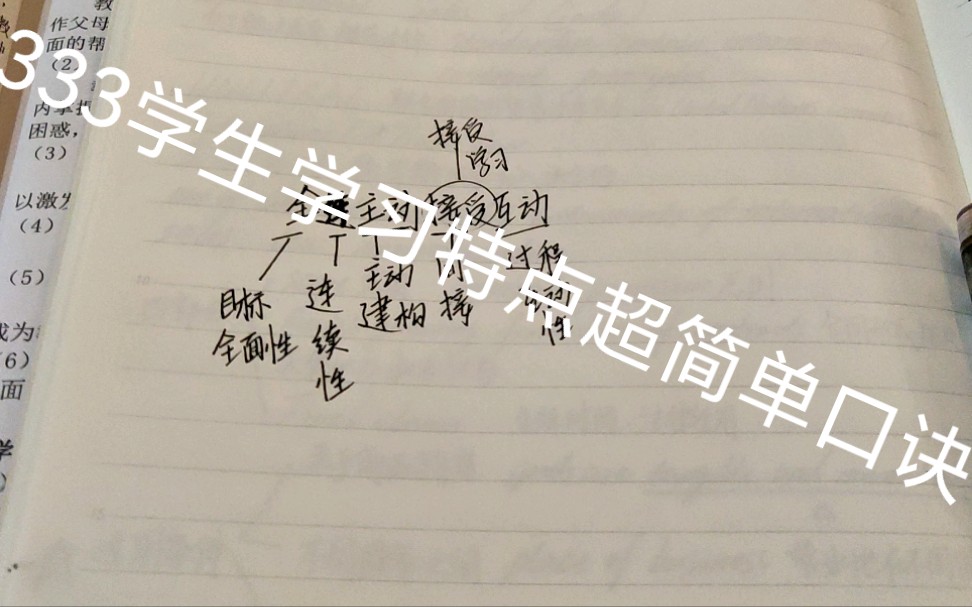 教
作父母
面的帮
(2)
困惑，
(3)
以激发
(4)
(5)
成为
(6)
面
学
333学生学习特点超简单口诀
接受
学习
全连主动接受互动
目标
全面性
连
续
性
主动
建构
间
接
过程
性